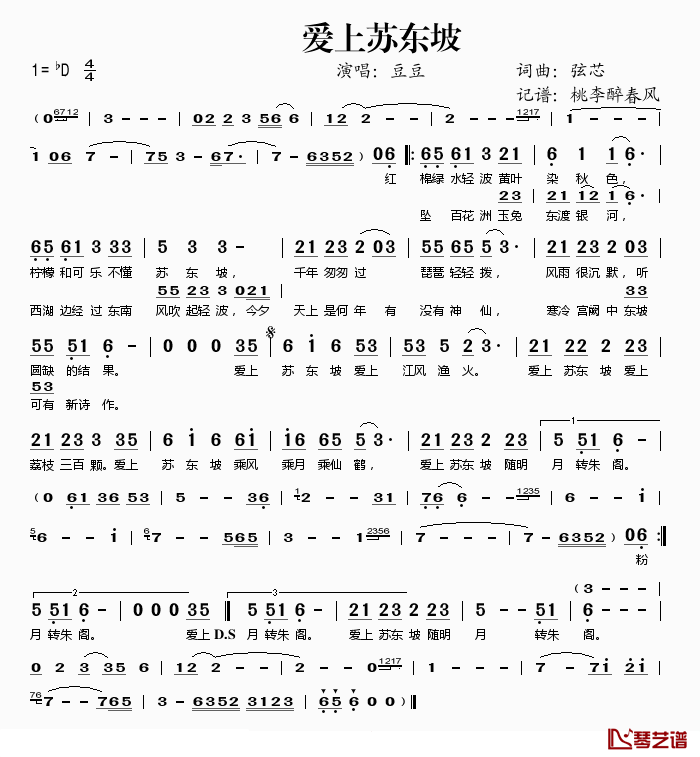 爱上苏东坡
1= ♭D 4/4 演唱：豆豆 词曲：弦芯
记谱：桃李醉春风
( 0 6712 | 3 - - - | 02 2 3 56 6 | 12 2 - - | 2 - - 1217 | 1 - - -
1 06 7 - | 75 3 - 67· | 7 - 6352 ) 06 |: 65 61 3 21 | 6 1 16· |
红 棉绿 水轻 波 黄叶 染 秋 色，
23 | 21 12 16· |
坠 百花 洲 玉兔 东渡 银 河，
65 61 3 33 | 5 3 3 - | 21 23 2 03 | 55 65 53· | 21 23 2 03 |
柠檬 和可 乐 不懂 苏 东 坡， 千年 匆匆 过 琵琶 轻轻 拨， 风雨 很沉 默，听
55 23 3 021 | 33
西湖 边经 过 东南 风吹 起轻 波，今夕 天上 是何 年 有 没有 神 仙， 寒冷 宫阙 中 东坡
55 51 6 - | 0 0 0 35 | 6 i 65 53 | 53 5 23· | 21 22 23 23 |
圆缺 的结 果。 爱上 苏 东 坡 爱上 江风 渔 火。 爱上 苏东 坡 爱上
53
可有 新诗 作。
21 23 3 35 | 6 i 6 6i | i6 65 53· | 21 23 2 23 | 5 51 6 - |
1
荔枝 三百 颗。爱上 苏 东 坡 乘风 乘月 乘仙 鹤， 爱上 苏东 坡 随明 月 转朱 阁。
( 0 61 36 53 | 5 - - 36 | 1 2 - - 31 | 76 6 - 1235 | 6 - - i |
5 6 - - i | 6 7 - - 565 | 3 - - 1 2356 | 7 - - - | 7 - 6352 ) 06 :|
粉
2 3 ( 3 - -
5 51 6 - | 0 0 0 35 || 5 51 6 - | 21 23 2 23 | 5 - - 51 | 6 - - -
月 转朱 阁。 爱上 D.S 月 转朱 阁。 爱上 苏东 坡 随明 月 转朱 阁。
0 2 3 35 6 | 12 2 - - | 2 - - 0 1217 | 1 - - - | 7 - 7i 2i |
76 7 - - 765 | 3 - 6352 3123 | 65 6 0 0 ) ||
琴艺谱